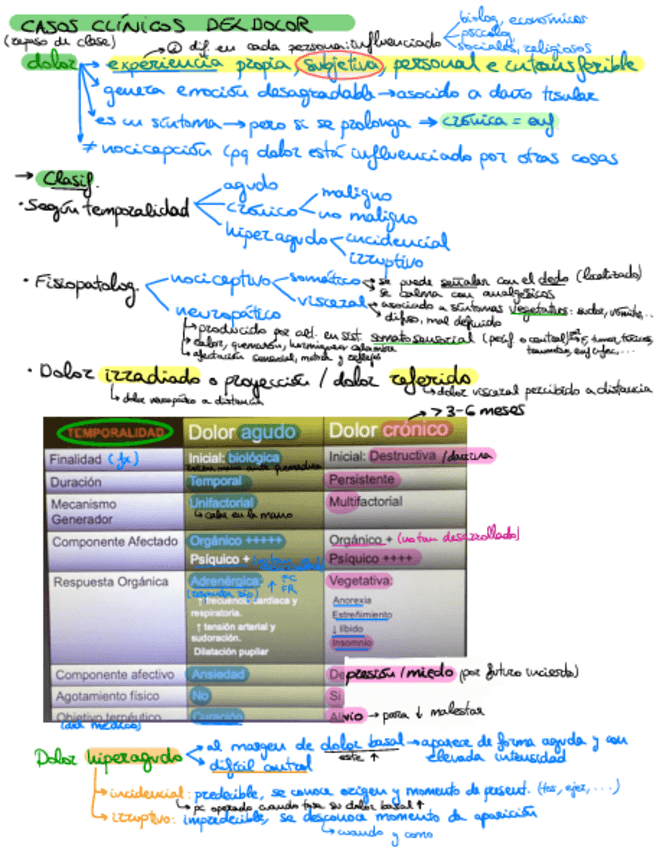 CASOS CLÍNICOS DEL DOLOR
(repaso de clase)
② dif en cada persona: influenciado
biolog, económicos
psicolog
sociales, religiosos
dolor → experiencia propia, subjetiva, personal e intransferible
genera emoción desagradable → asociado a daño tisular
es un síntoma → pero si se prolonga → crónica = enf
≠ nocicepción (pq dolor está influenciado por otras cosas
→ Clasif.
· Según temporalidad
agudo
crónico
maligno
no maligno
hiperagudo
incidencial
irruptivo
· Fisiopatolog.
nociceptivo
somático
se puede señalar con el dedo (localizado)
se calma con analgésicos
visceral
asociado a síntomas vegetativos: sudor, vómitos,...
difuso, mal definido
neuropático
producido por alt. en sist. somatosensorial (perif o central)
calor, quemazón, hormigueo
afectación sensorial, motora y reflejos
· Dolor irradiado o proyección / dolor referido
dolor neuropático a distancia
dolor visceral percibido a distancia
> 3-6 meses
TEMPORALIDAD Dolor agudo Dolor crónico
Finalidad (fx) Inicial: biológica Inicial: Destructiva /dañina
Duración Temporal Persistente
Mecanismo Generador Unifactorial Multifactorial
calor en la mano
Componente Afectado Orgánico +++++ Orgánico + (no tan desarrollado)
Psíquico + Psíquico ++++
Respuesta Orgánica Adrenérgica: Vegetativa:
(respuesta sip) ↑ FC FR
↑ frecuencia cardiaca y respiratoria.
↑ tensión arterial y sudoración.
Dilatación pupilar
Anorexia
Estreñimiento
↓ líbido
Insomnio
Componente afectivo Ansiedad Depresión/miedo (por futuro incierto)
Agotamiento físico No Si
Objetivo terpéutico Curación Alivio → para ↓ malestar
(del médico)
Dolor hiperagudo
al margen de dolor basal → aparece de forma aguda y con elevada intensidad
este ↑
difícil control
incidencial: predecible, se conoce origen y momento de present. (tos, ejer, ...)
pc operado, cuando tose su dolor basal ↑
irruptivo: impredecible, se desconoce momento de aparición
cuando y como